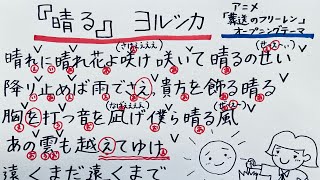 『晴る』 ヨルシカ
アニメ
「葬送のフリーレン」
オープニングテーマ
晴れに晴れ花よ咲け 咲いて晴るのせい
降り止めば雨でさえ貴方を飾る晴る
胸を打つ音を凪げ僕ら晴る風
あの雲も越えてゆけ
遠くまだ遠くまで